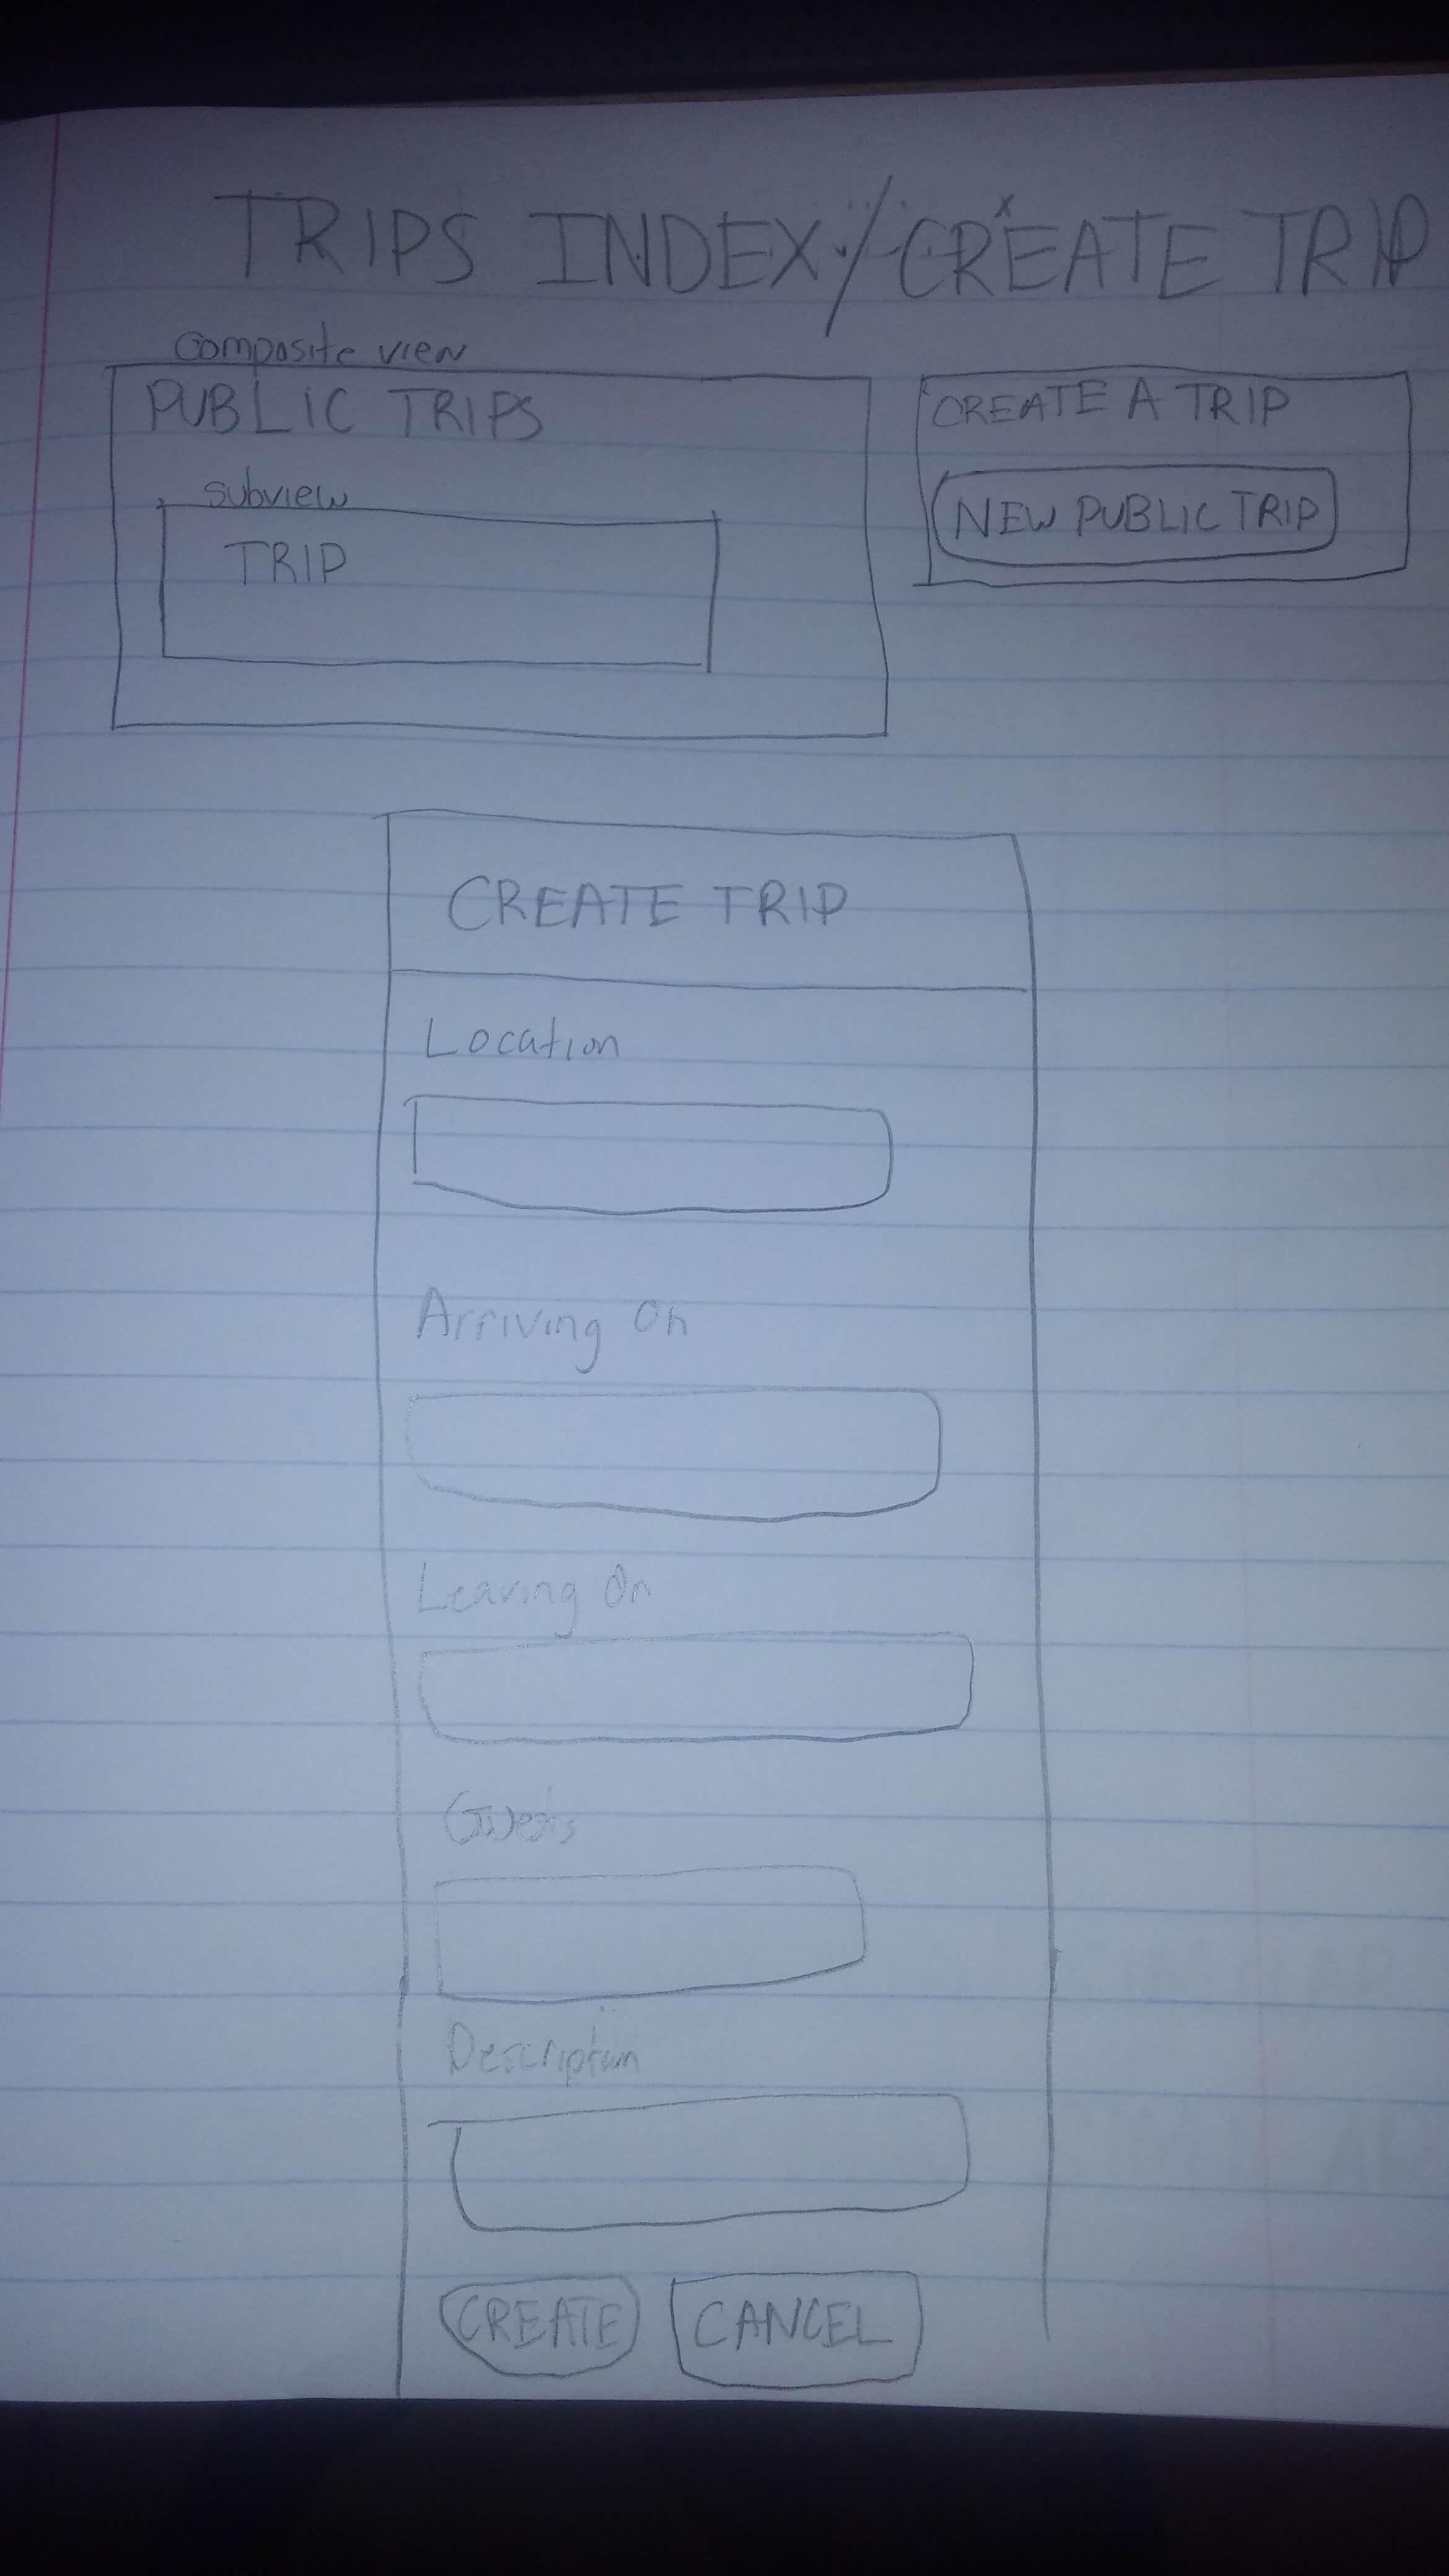 TRIPS INDEX/CREATE TRIP
Composite view
PUBLIC TRIPS
subview
TRIP
CREATE A TRIP
NEW PUBLIC TRIP
CREATE TRIP
Location
Arriving On
Leaving On
Guests
Description
CREATE
CANCEL